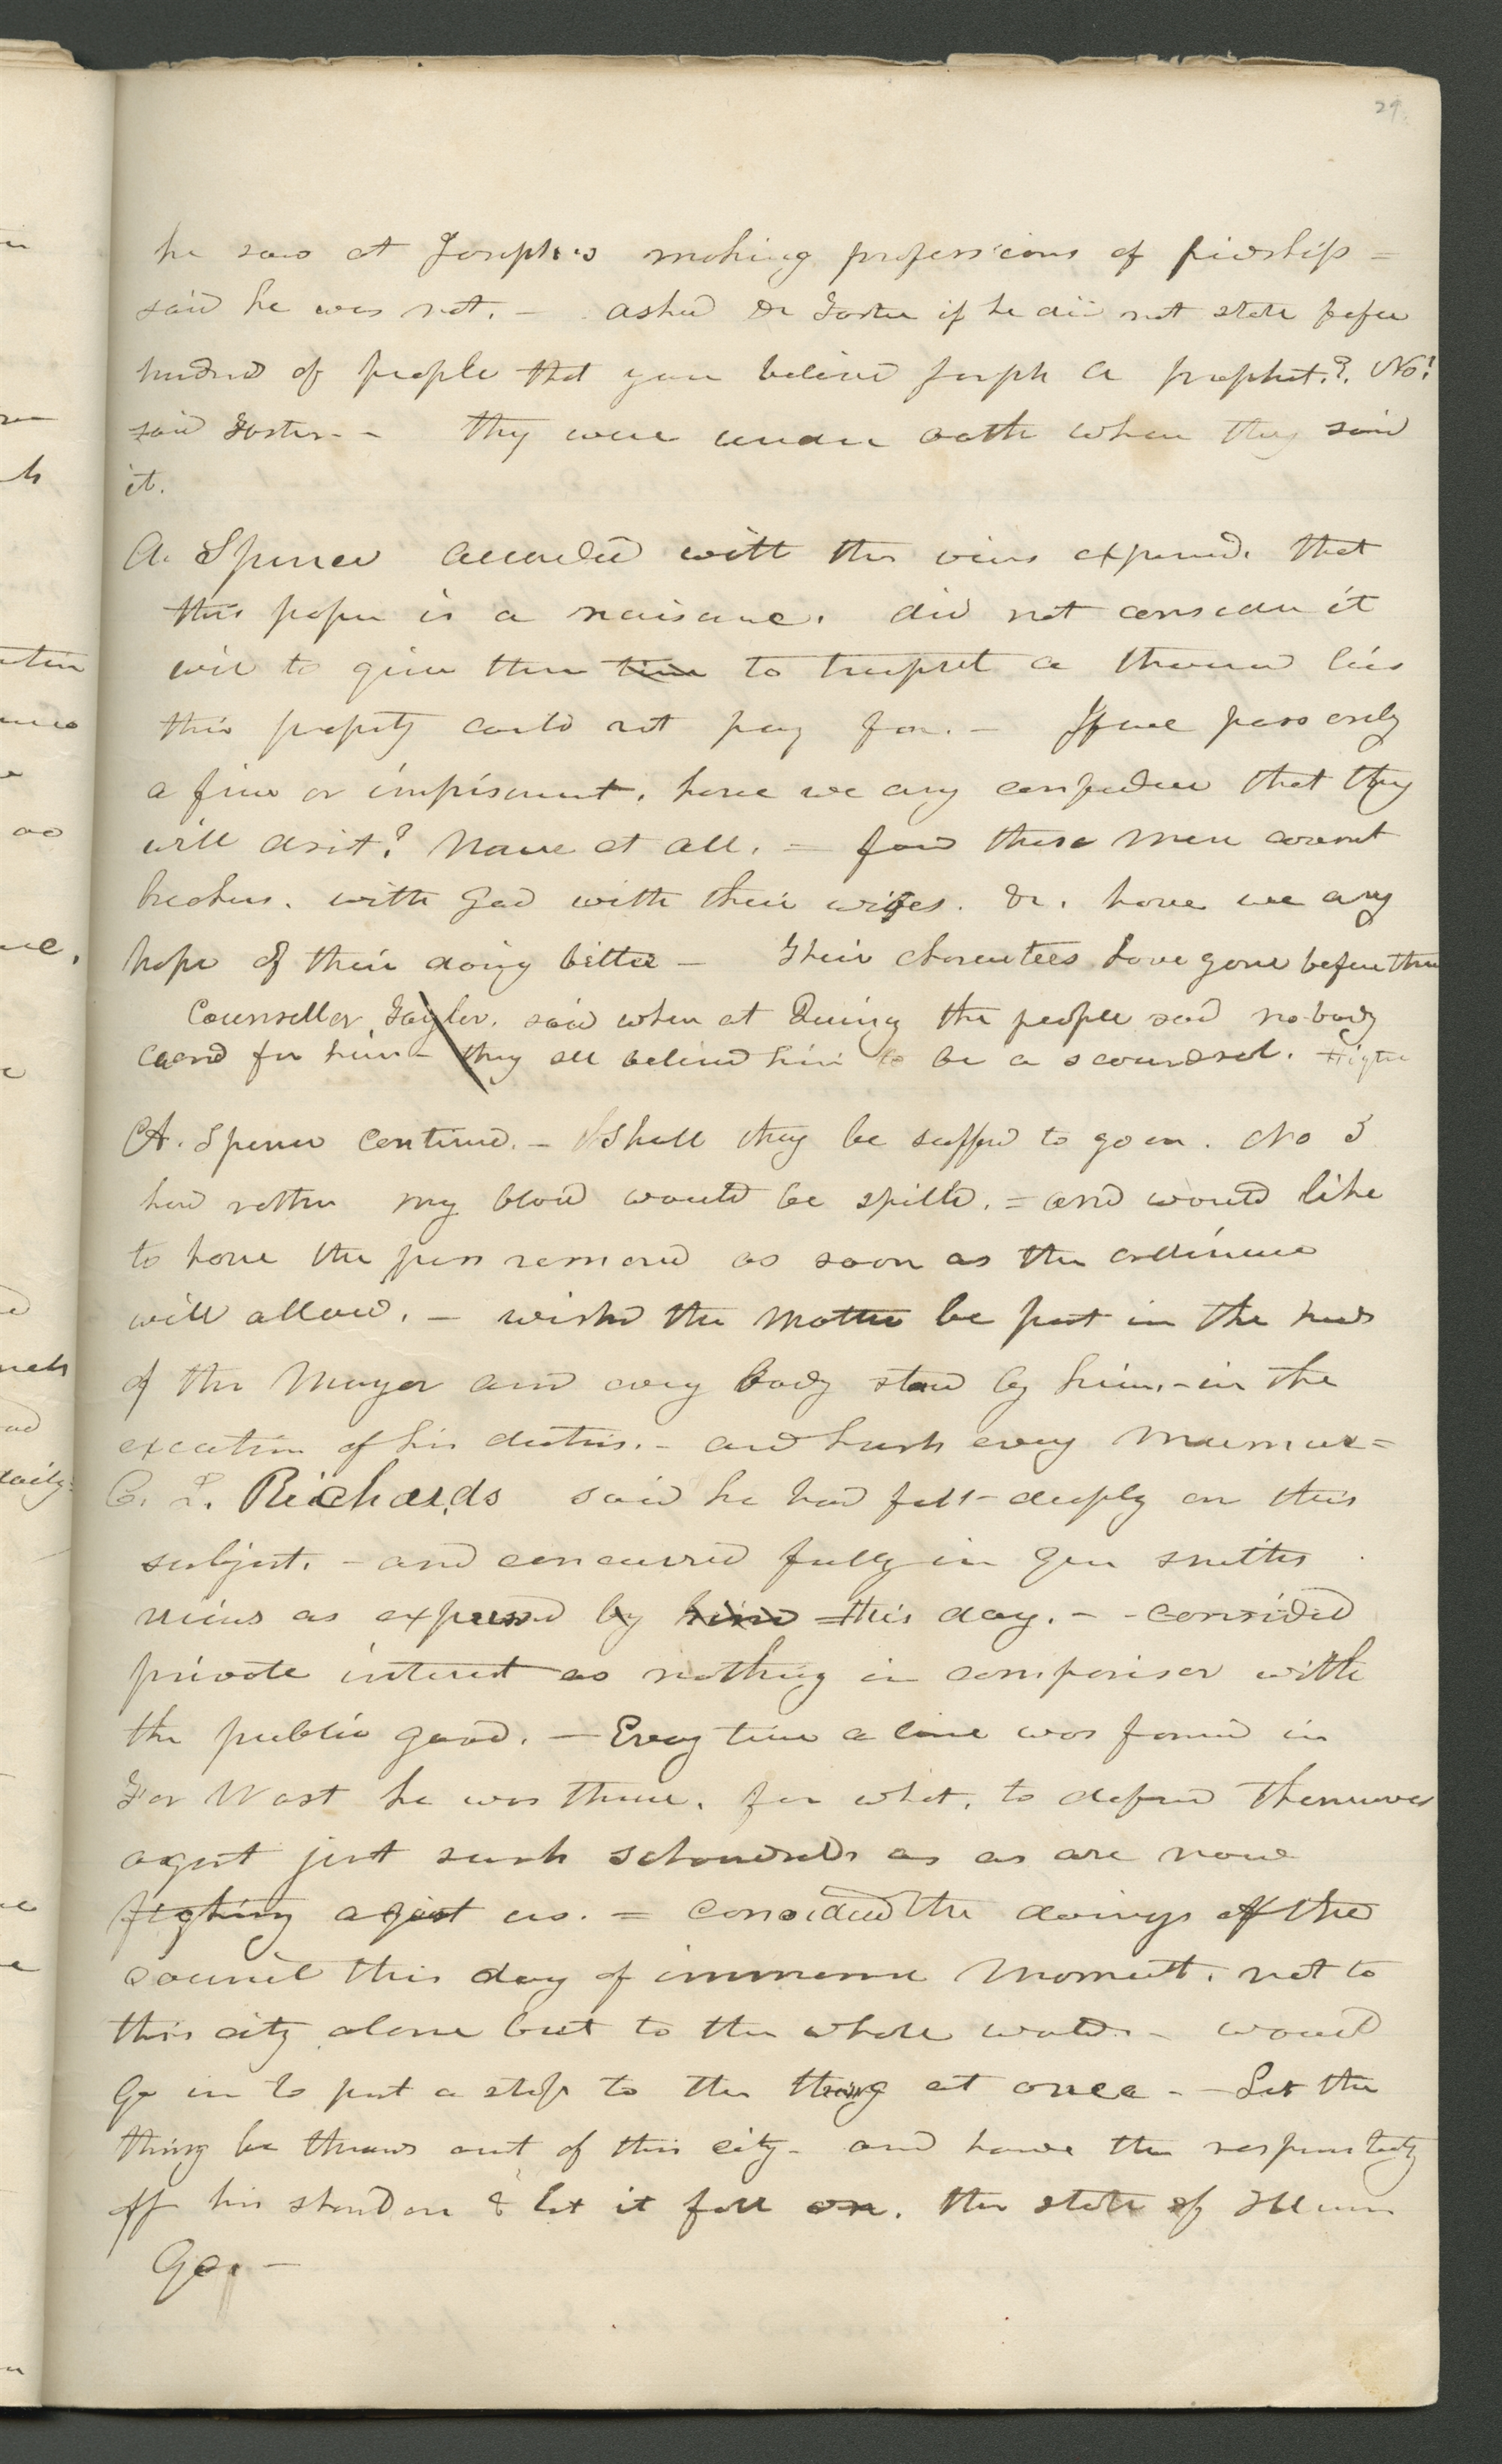 29.
he saw at Joseph's making professions of fridship =
said he was not. - asked Dr Foster if he did not state befor
hundrd of people that you believd Joseph a prophet.? No!
said Foster. - They were under oath when they said
it.
A. Spencer accorded with the views expresed. that
this paper is a nuisance. did not consider it
wise to give them time to trumpet a thousand lies
their property could not pay for. - If we pass only
a fine or imprisonment. have we any confidence that they
will desist? None at all. = found these men covenant
breakers. with God with their wifes. &c. have we any
hope of their doing better - Their characters have gone before them
Counsellor Taylor. said when at Quincy the people said no-body
cared for him - they all belived him to be a scoundrel. Higbee
A. Spencer continud. - Shall they be suffred to go on. No I
had rather my blood would be spilld. = and would like
to have the press removed as soon as the ordinance
will allow. - wishd the matter be put in the hands
of the Mayor and every body stand by him. - in the
execution of his duties. - and hush every murmur =
C. L. Richards said he had felt deeply on this
subject. - and concurred fully in Gen smiths
views as expressd by him this day. - considd
private interest as nothing in comparison with
the public good. - Every time a line was formd in
Far West he was there. for what. to defend themselves
against just such schoundrels as as are now
fighting against us. = considered the doings of the
council this day of immense moment. not to
this city alone but to the whole world. - would
go in to put a stop to the thing at once. - Let the
thing be thrown out of this city - and have the responsibility
off his shoulders & let it fall on. the state of Illinois
Go. -